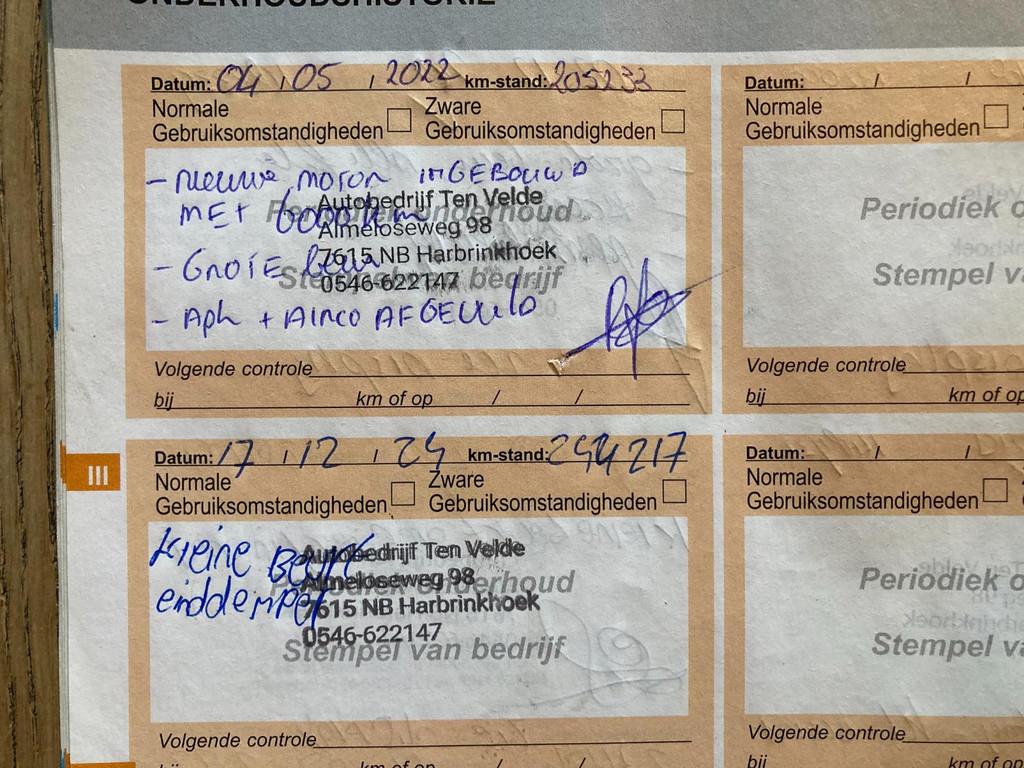 ONDERHOUDSHISTORIE
Datum: 04 / 05 / 2022 km-stand: 205233
Normale Gebruiksomstandigheden
Zware Gebruiksomstandigheden
- nieuwe motor ingebouwd
met 6000 km
- Grote beurt
- APK + AIRCO AFGEVULD
Periodiek onderhoud
Stempel van bedrijf
Autobedrijf Ten Velde
Almeloseweg 98
7615 NB Harbrinkhoek
0546-622147
Volgende controle
bij km of op / /
Datum: / /
Normale
Gebruiksomstandigheden
Periodiek o
Stempel va
Volgende controle
bij km of op
III
Datum: 17 / 12 / 24 km-stand: 244217
Normale Gebruiksomstandigheden
Zware Gebruiksomstandigheden
Kleine Beurt
einddemper
Periodiek onderhoud
Stempel van bedrijf
Autobedrijf Ten Velde
Almeloseweg 98
7615 NB Harbrinkhoek
0546-622147
Volgende controle
bij km of op / /
Datum: / /
Normale
Gebruiksomstandigheden
Periodiek o
Stempel va
Volgende controle
bij km of op